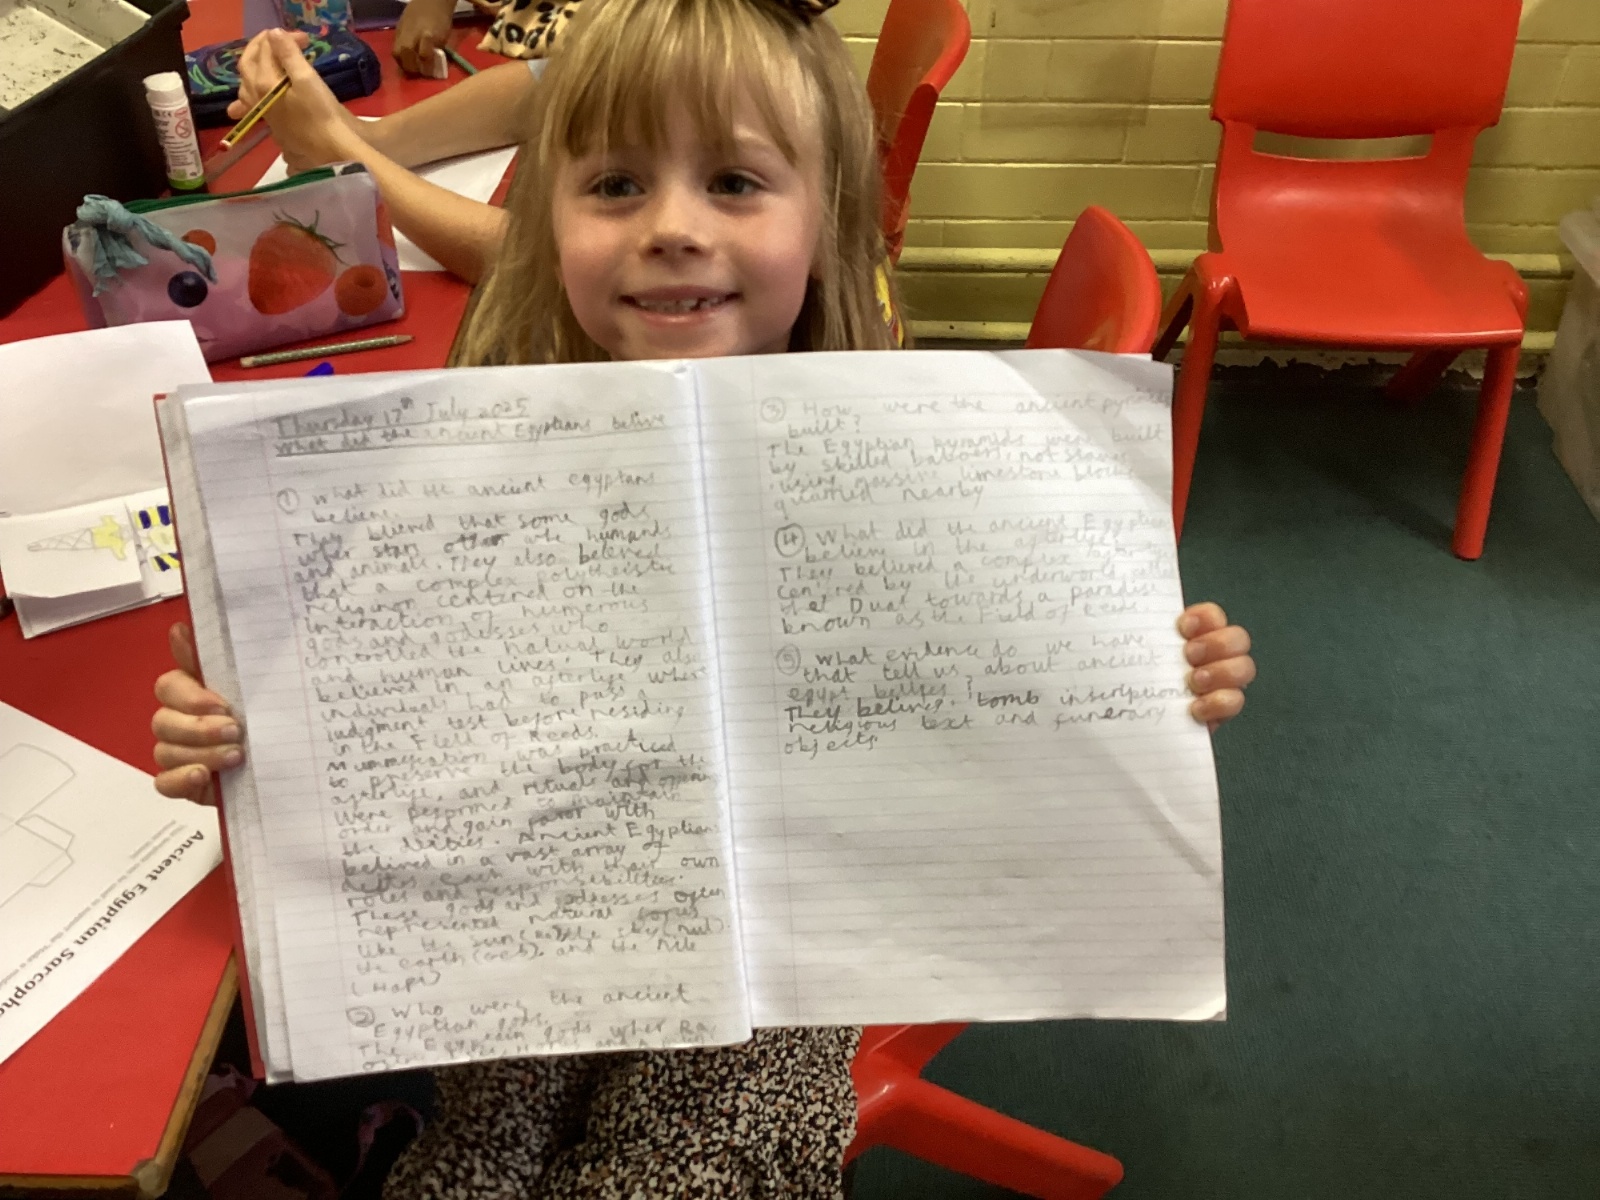 Thursday 17th July 2025
What did the ancient Egyptians believe
① What did the ancient egyptans
believe.
They blieved that some gods
wher stars other whe humans
and animals. They also beleved
that a complex polytheistic
religion centered on the
interaction of numerous
gods and godesses who
controlled the natual world
and human lives. They also
believed in an afterlife where
individuals had to pass a
judgment test before residing
in the Field of Reeds.
Mummyication was practiced
to preserve the body for the
afterlife, and rituals and offering
were performed to maintain
order and gain favor with
the deities. Ancient Egyptians
belived in a vast array of
each with their own
roles and responsibilities.
These gods and godesses often
represented natural forces
like the sun the sky (nut).
the earth (Geb). and the Nile
(Hapi)
② Who were the ancient
Egyptian gods.
The Egyptein gods wher Ra,
③ How were the ancient pyramids
built?
The Egyptian pyramids were built
by skilled not slaves
using massive limestone blocks
quarried nearby
④ What did the ancient Egyptians
believe in the afterlife
They believed a complex
centred by the underworld called
the Duat towards a paradise
known as the Field of Reeds
⑤ What evidence do we have
that tell us about ancient
egypt belifes?
They belive. tomb inscriptions
religious text and funerary
objects.
Ancient Egyptian Sarcoph